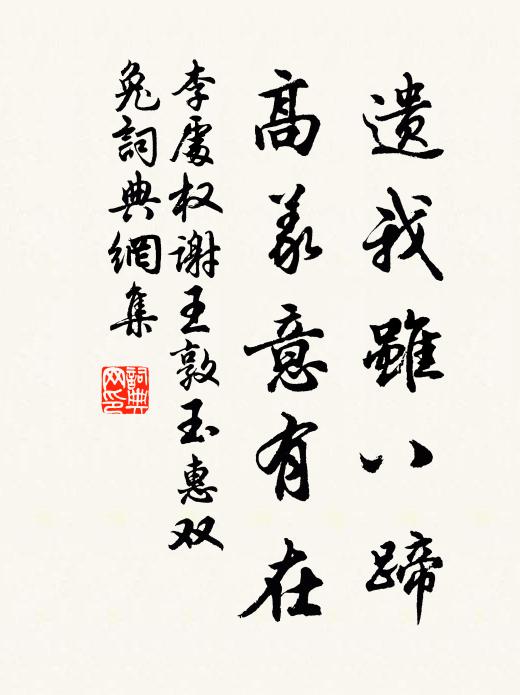 遗我雖八蹄
高義意有在
李處权谢王敦玉惠双
兔詞典網集
詞典网印